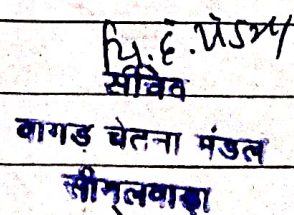 सचिव
वागड़ चेतना मंडल
सीमलवाड़ा